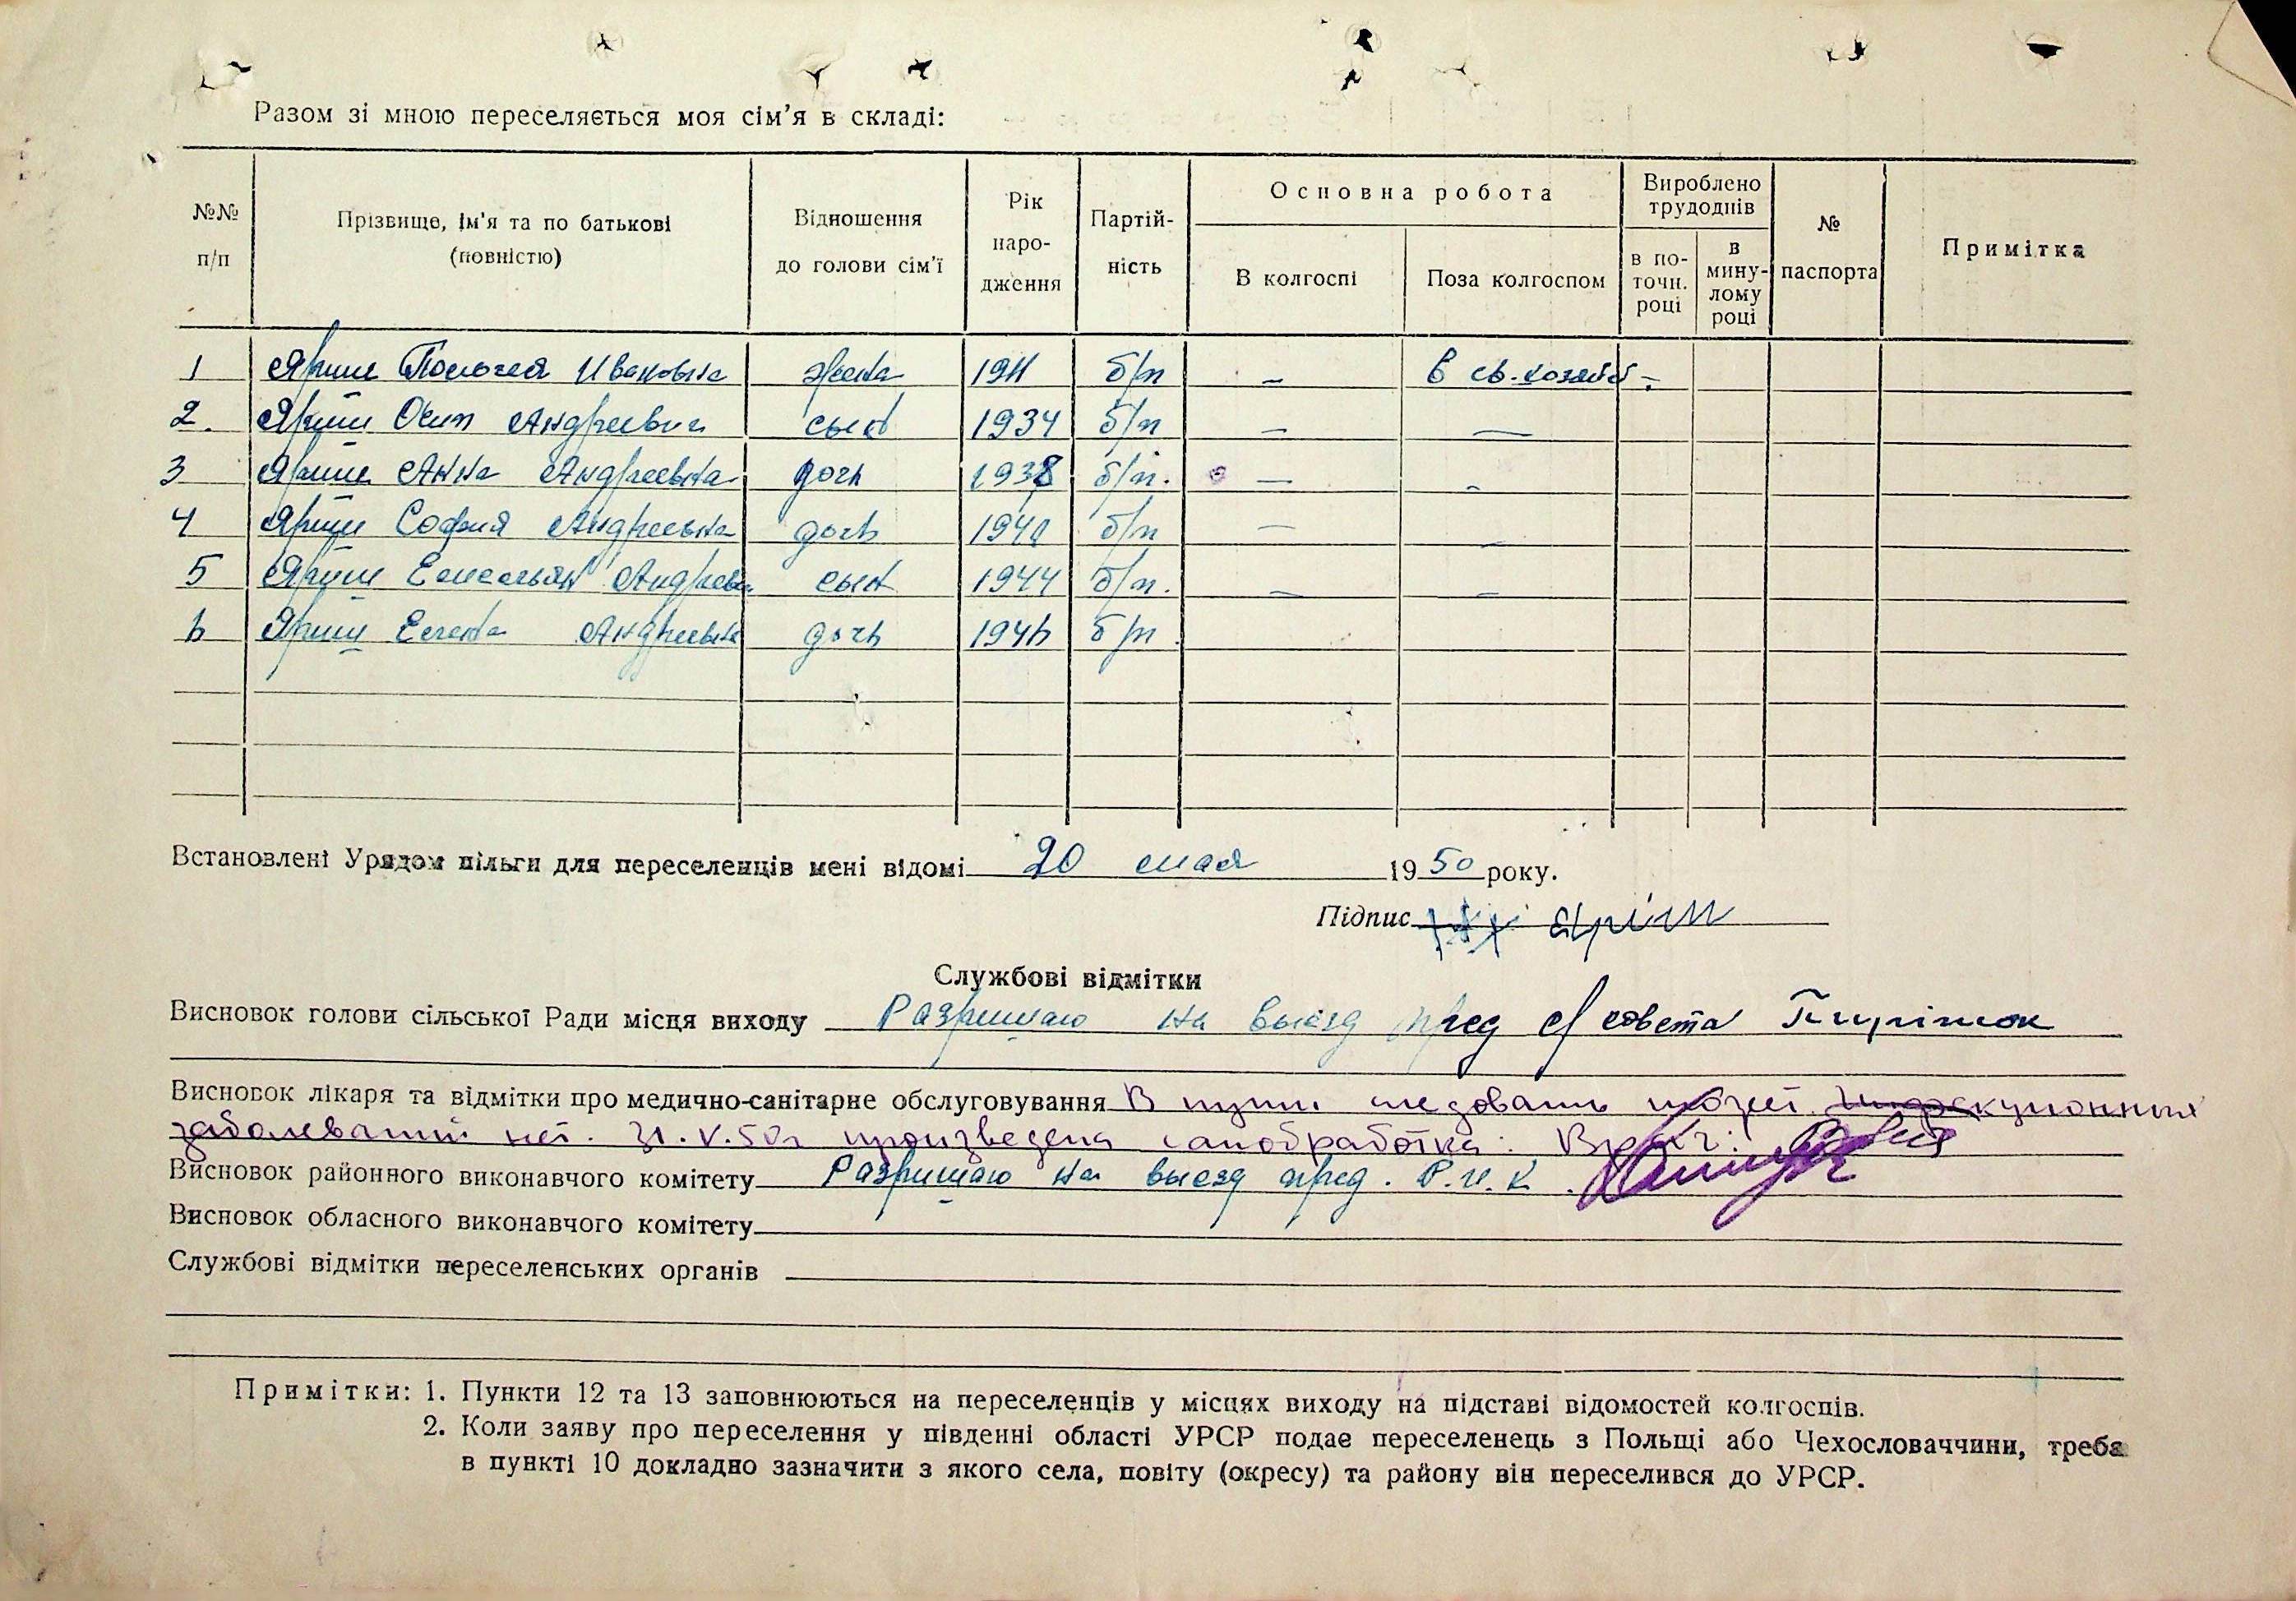 Разом зі мною переселяється моя сім'я в складі:
№№ п/п
Прізвище, ім'я та по батькові (повністю)
Відношення до голови сім'ї
Рік наро- дження
Партій- ність
Основна робота
В колгоспі
Поза колгоспом
Вироблено трудоднів
в по- точн. році
в мину- лому році
№ паспорта
Примітка
1 Ивановна жена 1911 б/п – в св. хозяйст –
2. Осип Андреевич сын 1934 б/п – –
3 Анна Андреевна дочь 1938 б/п. – –
4 София Андреевна дочь 1941 б/п – –
5 Емельян Андреев сын 1944 б/п. – –
6 Елена Андреевна дочь 1946 б/п.
Встановлені Урядом пільги для переселенців мені відомі 20 мая 1950 року.
Підпис
Службові відмітки
Висновок голови сільської Ради місця виходу Разришаю на выезд пред с/совета
Висновок лікаря та відмітки про медично-санітарне обслуговування В пути следовать может. Инфекционных
заболеваний нет. 31.V.50г произведена санобработка: Врач:
Висновок районного виконавчого комітету Разришаю на выезд пред. Р.и.к.
Висновок обласного виконавчого комітету
Службові відмітки переселенських органів
Примітки: 1. Пункти 12 та 13 заповнюються на переселенців у місцях виходу на підставі відомостей колгоспів.
2. Коли заяву про переселення у південні області УРСР подає переселенець з Польщі або Чехословаччини, треба
в пункті 10 докладно зазначити з якого села, повіту (окресу) та району він переселився до УРСР.